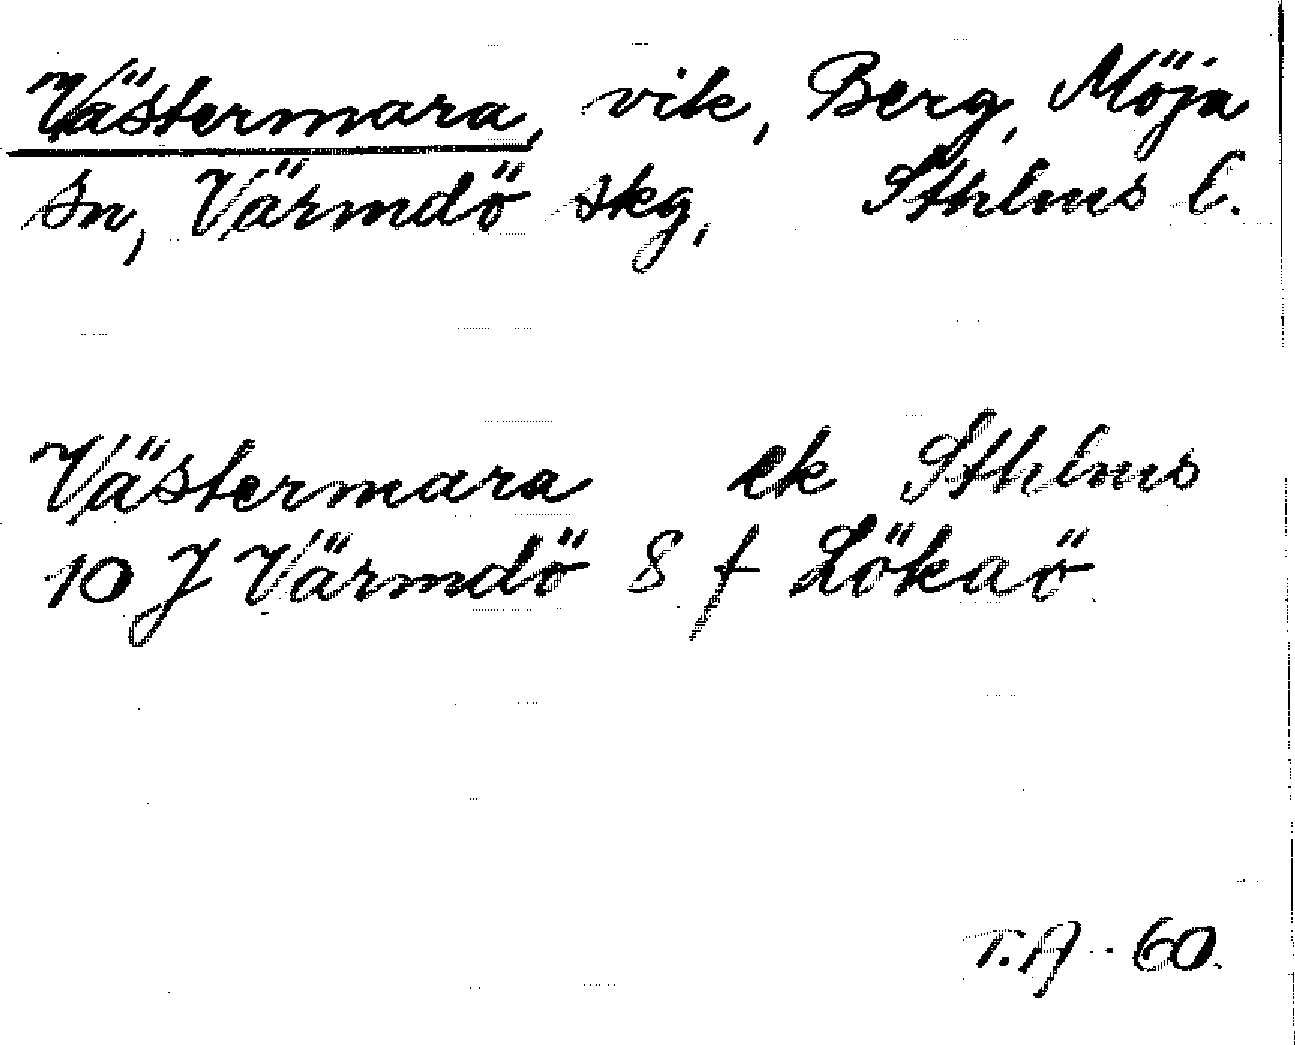 Västermara, vik, Berg, Möja
sn, Värmdö skg, Sthlms l.
Västermara ek Sthlms
10 J Värmdö S f Lökaö
T.A -60